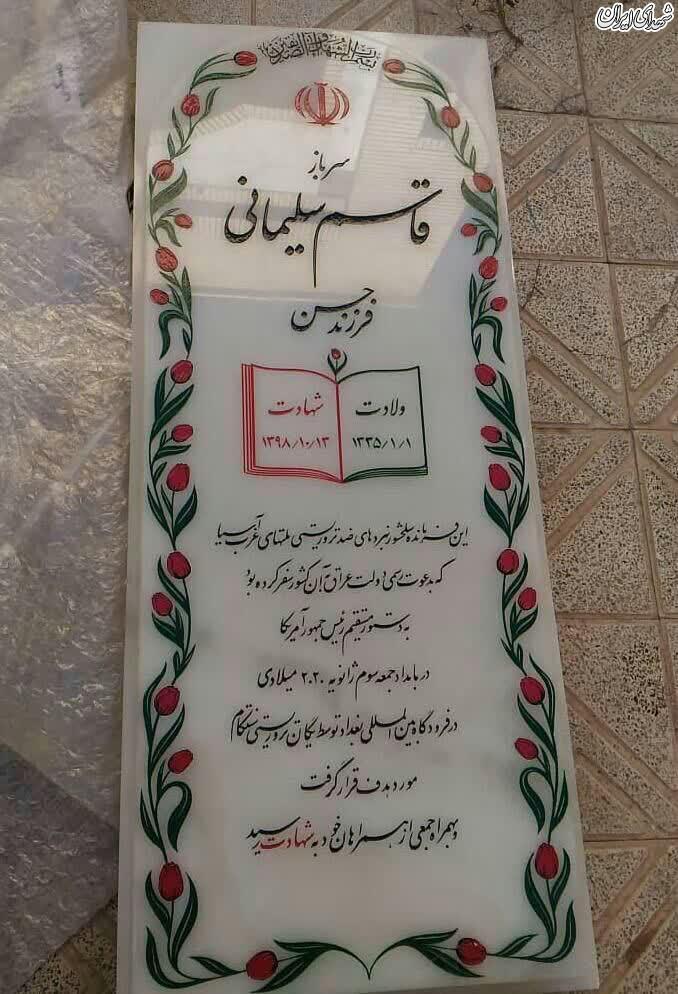 شهدای ایران
بسم رب الشهداء و الصدیقین
سرباز
قاسم سلیمانی
فرزند حسن
ولادت
۱۳۳۵/۱/۱
شهادت
۱۳۹۸/۱۰/۱۳
این فرمانده سلحشور نبردهای ضد تروریستی ملتهای غرب آسیا
که بدعوت رسمی دولت عراق به آن کشور سفر کرده بود
به دستور مستقیم رئیس جمهور آمریکا
در بامداد جمعه سوم ژانویه ۲۰۲۰ میلادی
در فرودگاه بین المللی بغداد توسط یگان تروریستی سنتکام
مورد هدف قرار گرفت
و بهمراه جمعی از همراهان خود به شهادت رسید